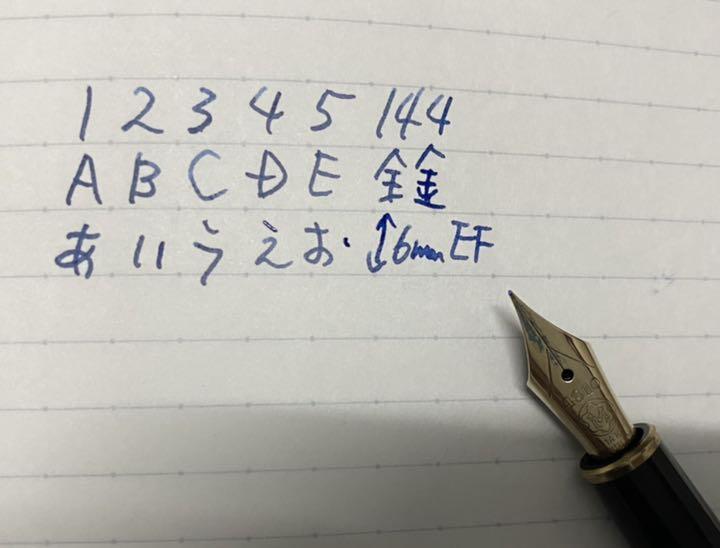 1 2 3 4 5 144
A B C D E 全金
あ い う え お ↕6mm EF